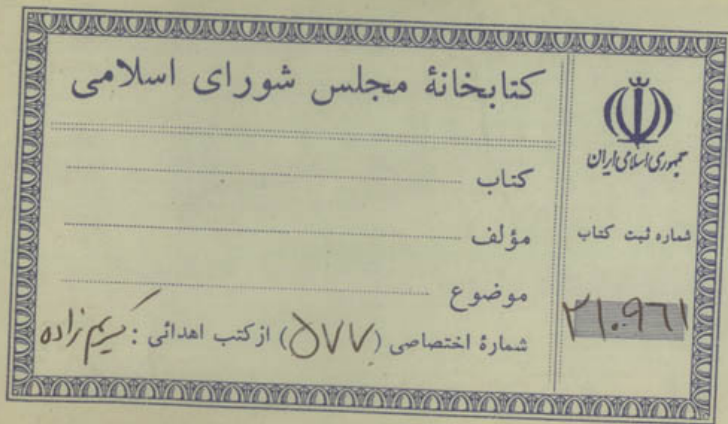 کتابخانهٔ مجلس شورای اسلامی
کتاب
مؤلف
موضوع
شمارهٔ اختصاصی (۵۷۷) از کتب اهدائی : کریم زاده
جمهوری اسلامی ایران
شماره ثبت کتاب
۳۱۰۹۶۱